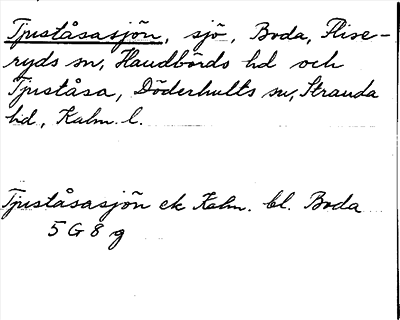 Tjuståsasjön, sjö, Boda, Flise-
ryds sn, Handbörds hd och
Tjuståsa, Döderhults sn, Stranda
hd, Kalm. l.
Tjuståsasjön ek Kalm. bl. Boda
5 G 8 g